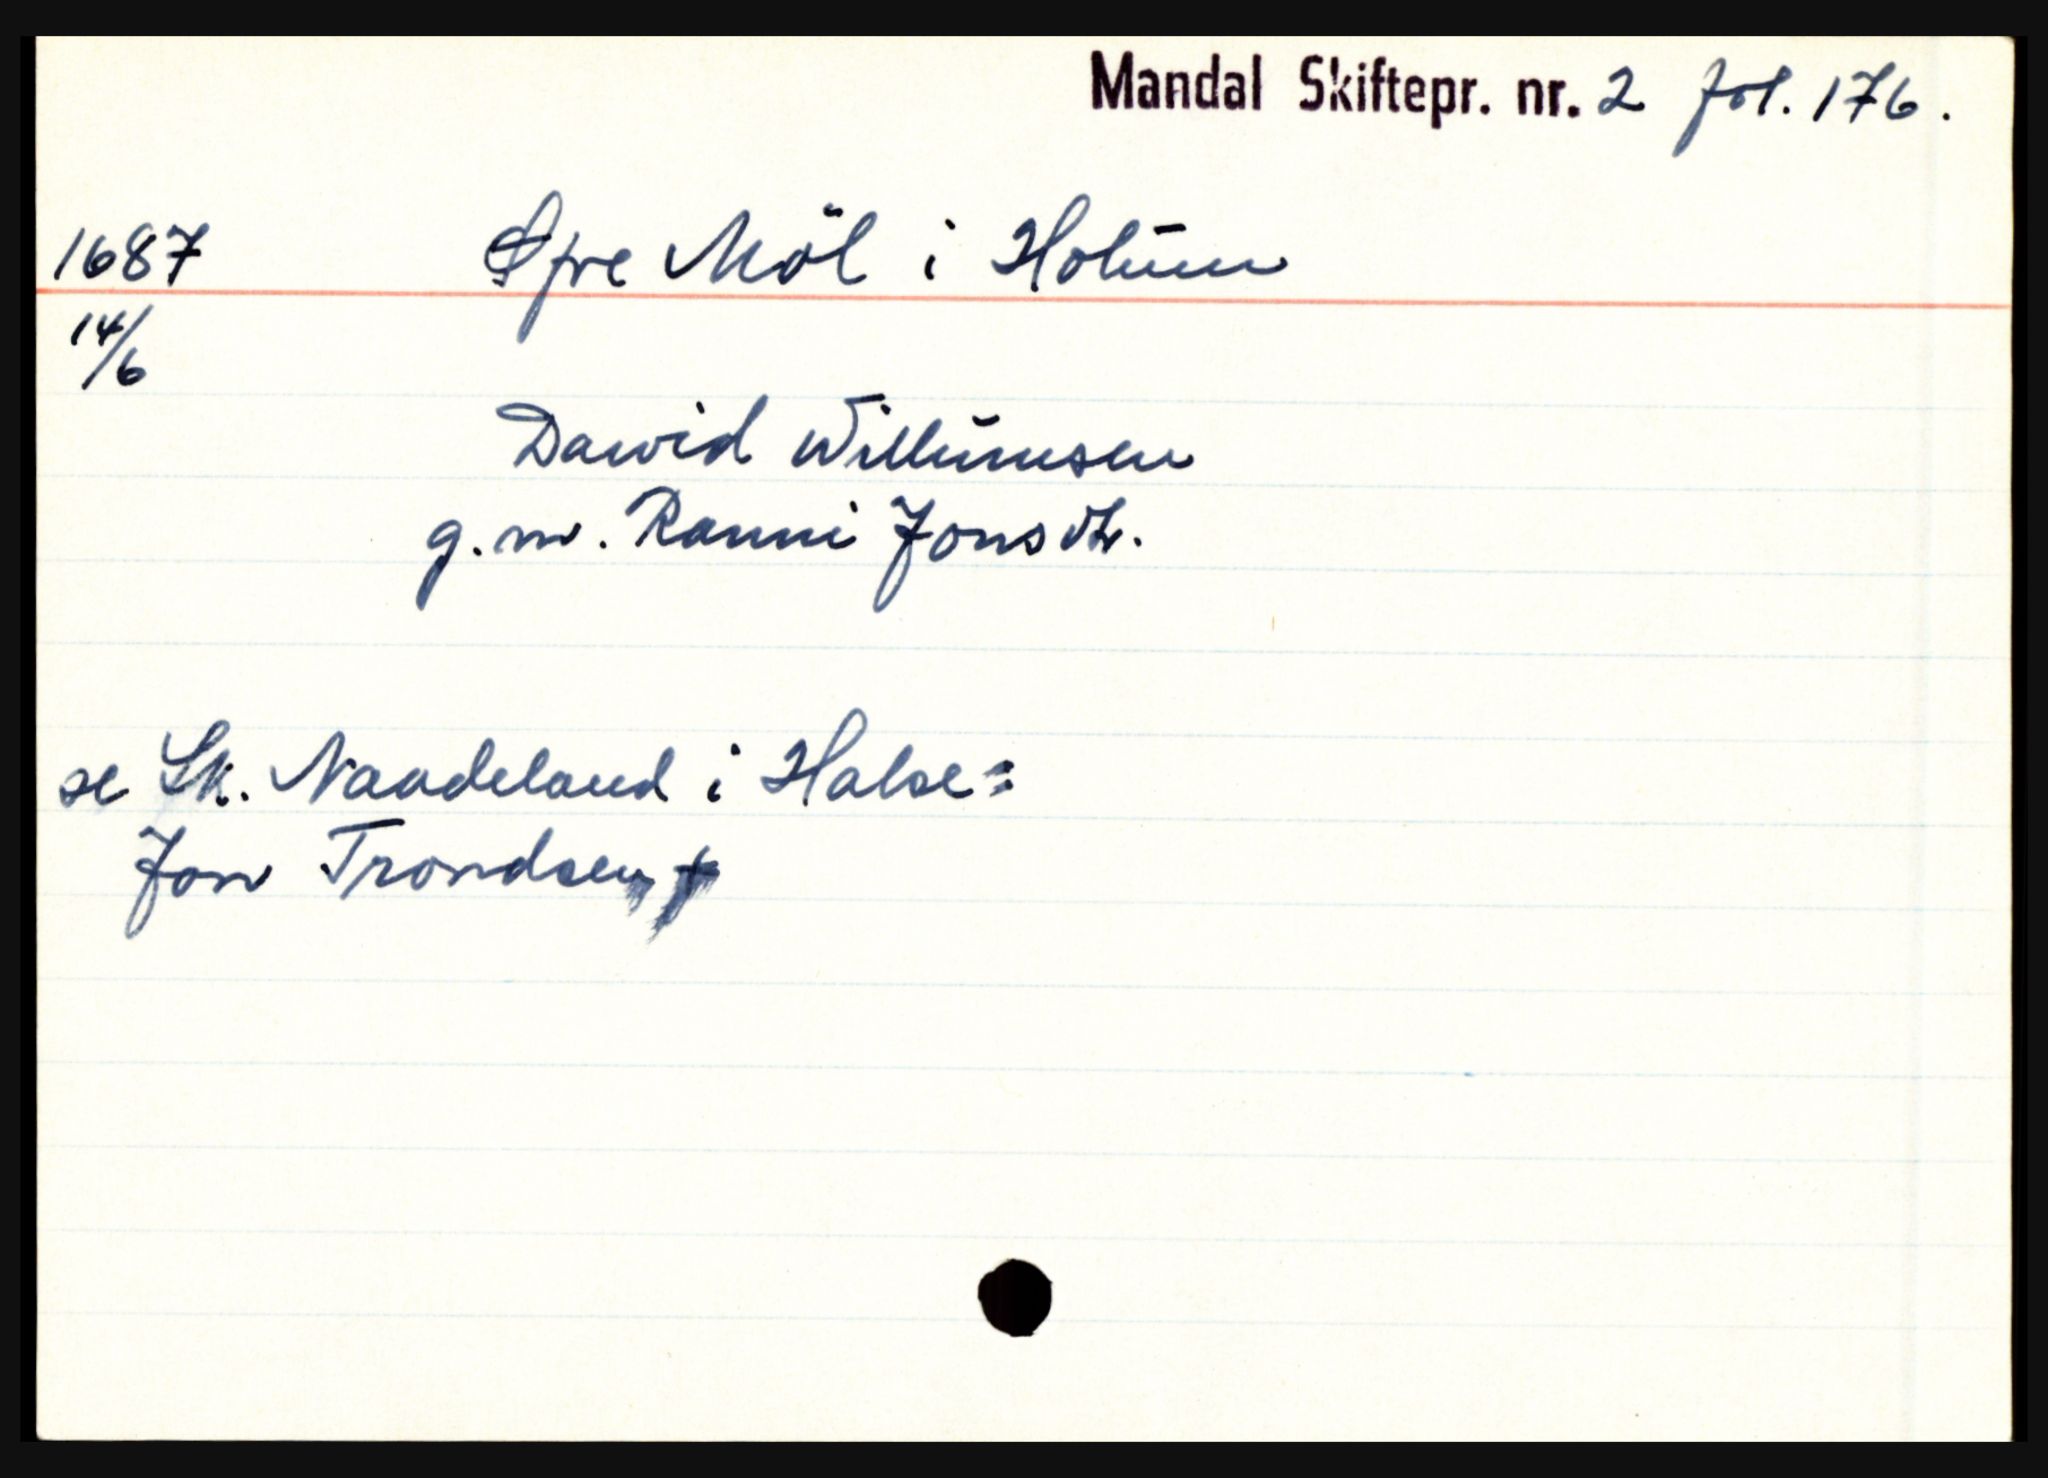 Mandal Skiftepr. nr. 2 fol. 176.
1687 Øfre Möl i Holum
14/6
Dawid Willumsen
g. m. Ranni Jonsdtr.
se Sk. Naadeland i Halse:
Jon Trondsen †